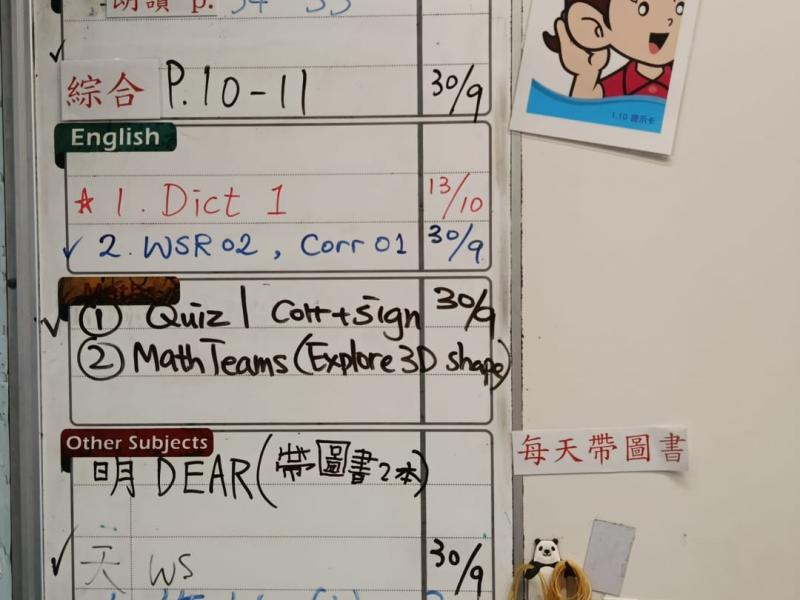 朗讀 p. 34-35
綜合 P.10-11 30/9
1.10 提示卡
English
☆ 1. Dict 1 13/10
✓ 2. WSR02, Corr01 30/9
Maths
✓ ① Quiz 1 Corr+sign 30/9
② Math Teams (Explore 3D shape)
Other Subjects
明 DEAR (帶圖書2本)
每天帶圖書
✓ 天 WS 30/9